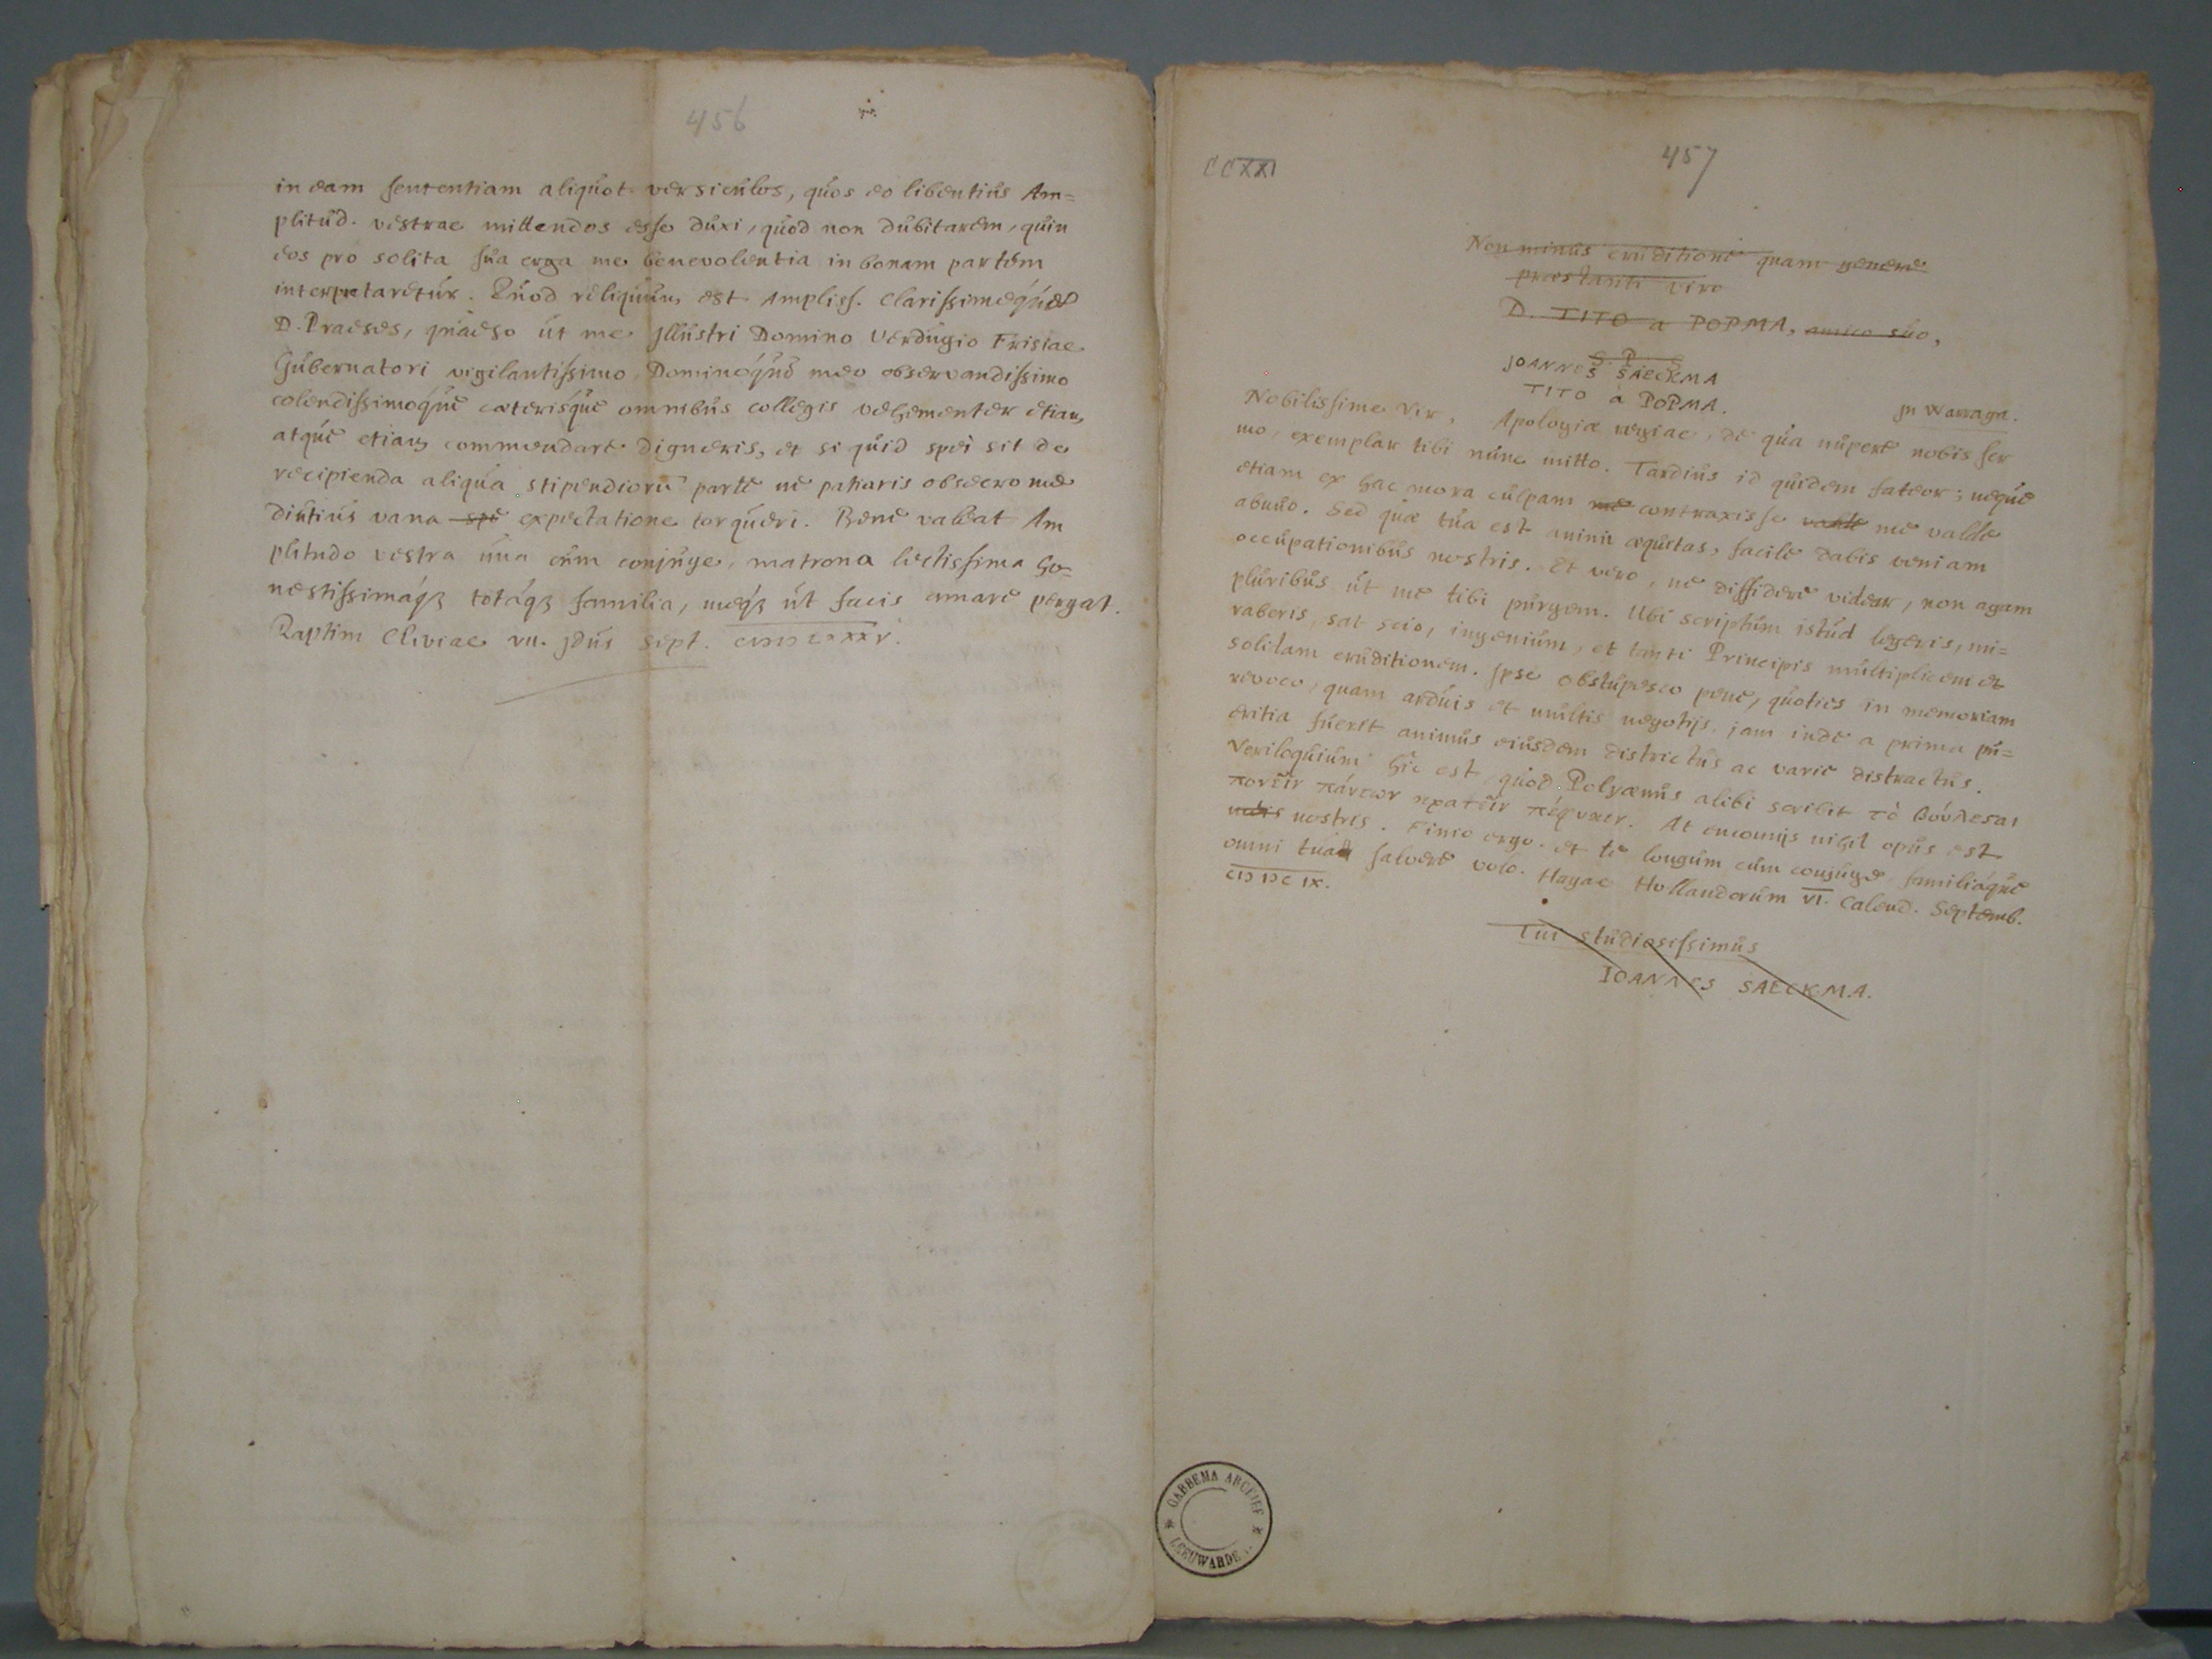 456
in eam sententiam aliquot versiculos, quos eo libentius Am=
plitud. vestrae mittendos esse duxi, quod non dubitarem, quin
eos pro solita sua erga me benevolentia in bonam partem
interpretaretur. Quod reliquum est Ampliss. Clarissimeque
D. Praeses, quaeso ut me Illustri Domino Verdugio Frisiae
Gubernatori vigilantissimo Dominoque meo observandissimo
colendissimoque caeterisque omnibus collegis vehementer etiam
atque etiam commendare digneris, et si quid spei sit de
recipienda aliqua stipendiorū parte ne patiaris obsecro me
diutius vana spe expectatione torqueri. Bene valeat Am
plitudo vestra una cum conjuge, matrona lectissima ho=
nestissimaqȝ totaqȝ familia, meqȝ ut facis amare pergat.
Raptim Cliviae VII. Idus Sept.
457
CCXXI
Non minus eruditione quam genere
praestanti viro
D. TITO a POPMA, amico suo,
S. P.
JOANNES SAECKMA
TITO à POPMA.
In Warraga.
Nobilissime Vir, Apologiae regiae, de qua nupere nobis ser
mo, exemplar tibi nunc mitto. Tardius id quidem fateor; neque
etiam ex hac mora culpam me contraxisse valde me valde
abnuo. Sed quae tua est animi aequitas, facile dabis veniam
occupationibus nostris. Et vero, ne diffidere videar, non agam
pluribus ut me tibi purgem. Ubi scriptum istud legeris, mi=
raberis, sat scio, ingenium, et tanti Principis multiplicem et
solidam eruditionem. Ipse obstupesco pene, quoties in memoriam
revoco, quam arduis et multis negotijs jam inde a prima pu=
eritia fuerit animus eiusdem districtus ac varie distractus.
Veriloquium hic est quod Polyaenus alibi scribit τὸ βούλεσαι
πονεῖν πάντων κρατεῖν πέφυκεν. At encomijs nihil opus est
nostris. Finio ergo. et te longum cum conjuge familiaque
omni tua salvere volo. Hagae Hollandorum VI. Calend. Septemb.
CIↃ IↃC IX.
Tui studiosissimus
IOANNES SAECKMA.
GABBEMA ARCHIEF
LEEUWARDEN